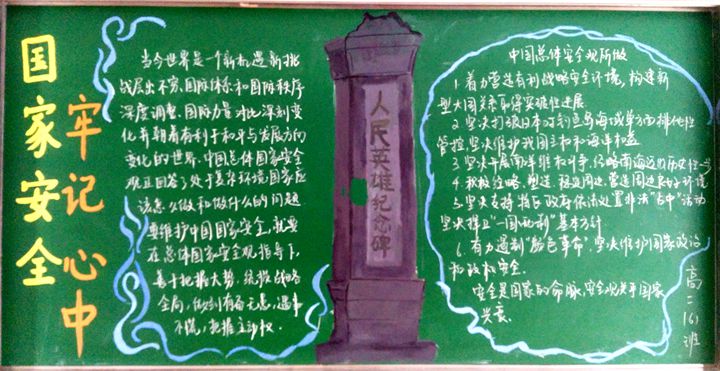 国家安全
牢记心中
当今世界是一个新机遇新挑
战层出不穷、国际体系和国际秩序
深度调整、国际力量对比深刻变
化并朝着有利于和平与发展方向
变化的世界.中国总体国家安全
观正回答了处于复杂环境国家应
该怎么做和做什么的问题
要维护中国国家安全,就要
在总体国家安全观指导下,
善于把握大势,统揽战略
全局,做到有备无患,遇事
不慌,把握主动权.
人民英雄纪念碑
中国总体安全观所做
1.着力营造有利战略安全环境,构建新
型大国关系取得突破性进展.
2.坚决打破日本对钓鱼岛海域单方面排他性
管控坚决维护我国主权和海洋权益
3.坚决开展南海维权斗争,经略南海迈出历史性一步
4.积极经略、塑造、稳定周边,营造周边良好环境
5.坚决支持特区政府依法处置非法"占中"活动
坚决捍卫"一国两制"基本方针
6.有力遏制"颜色革命",坚决维护国家政治
和政权安全.
安全是国家的命脉,安全观关乎国家
兴衰.
高二(6)班